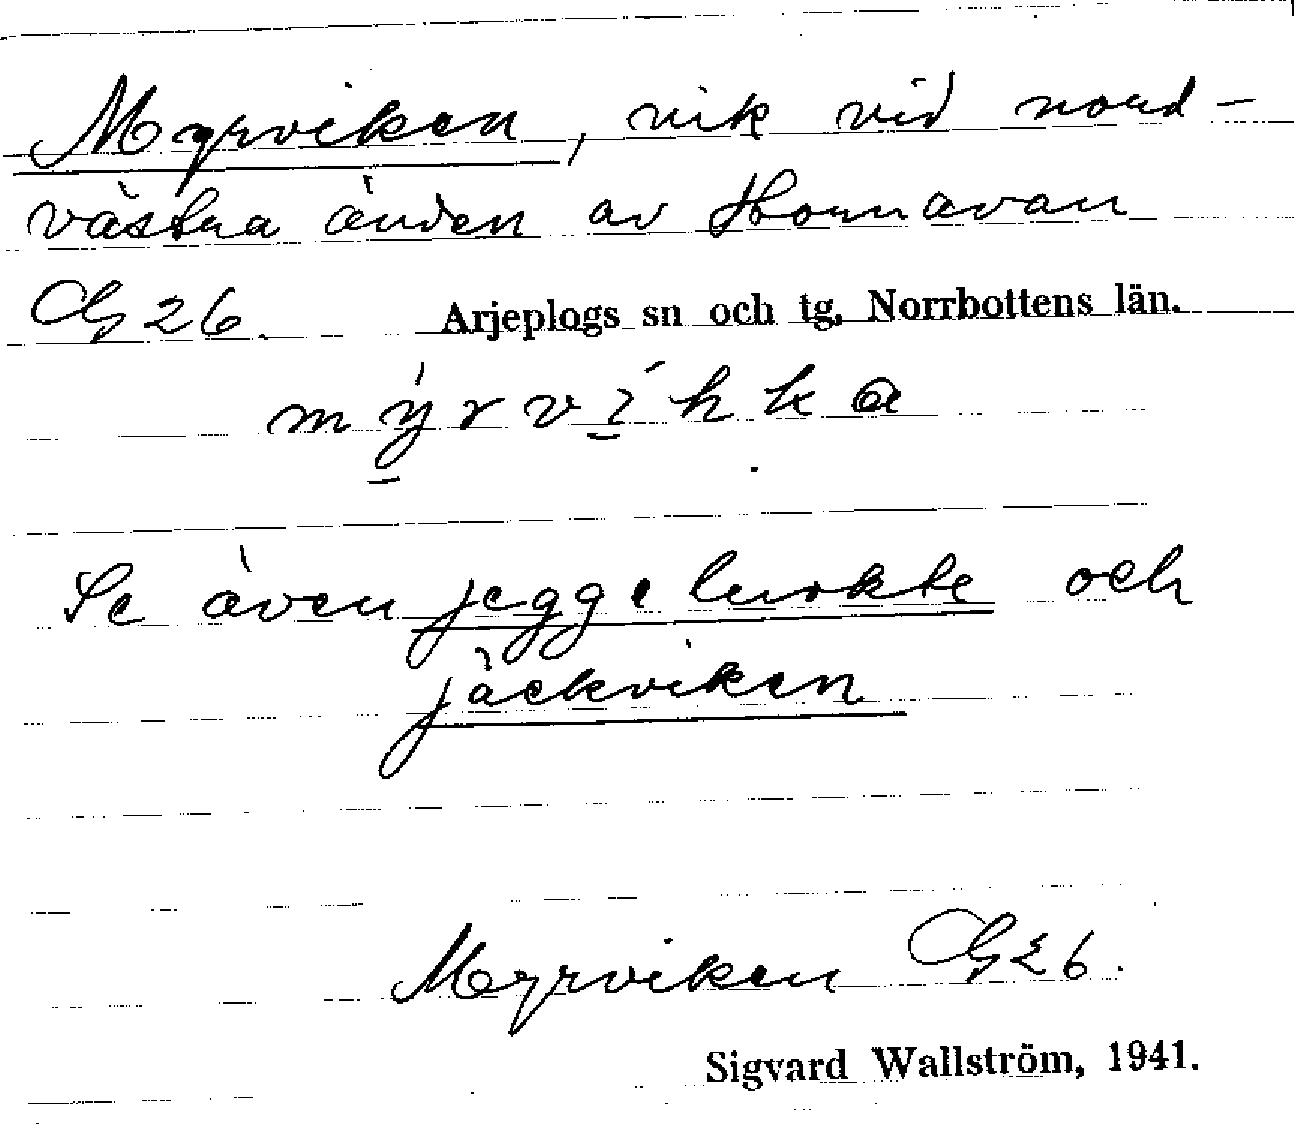 Myrviken, vik vid nord-
västra änden av Hornavan
G 26. Arjeplogs sn och tg, Norrbottens län.
mýrvíhka
Se även jegge luokte och
jäckviken
Myrviken G 26.
Sigvard Wallström, 1941.